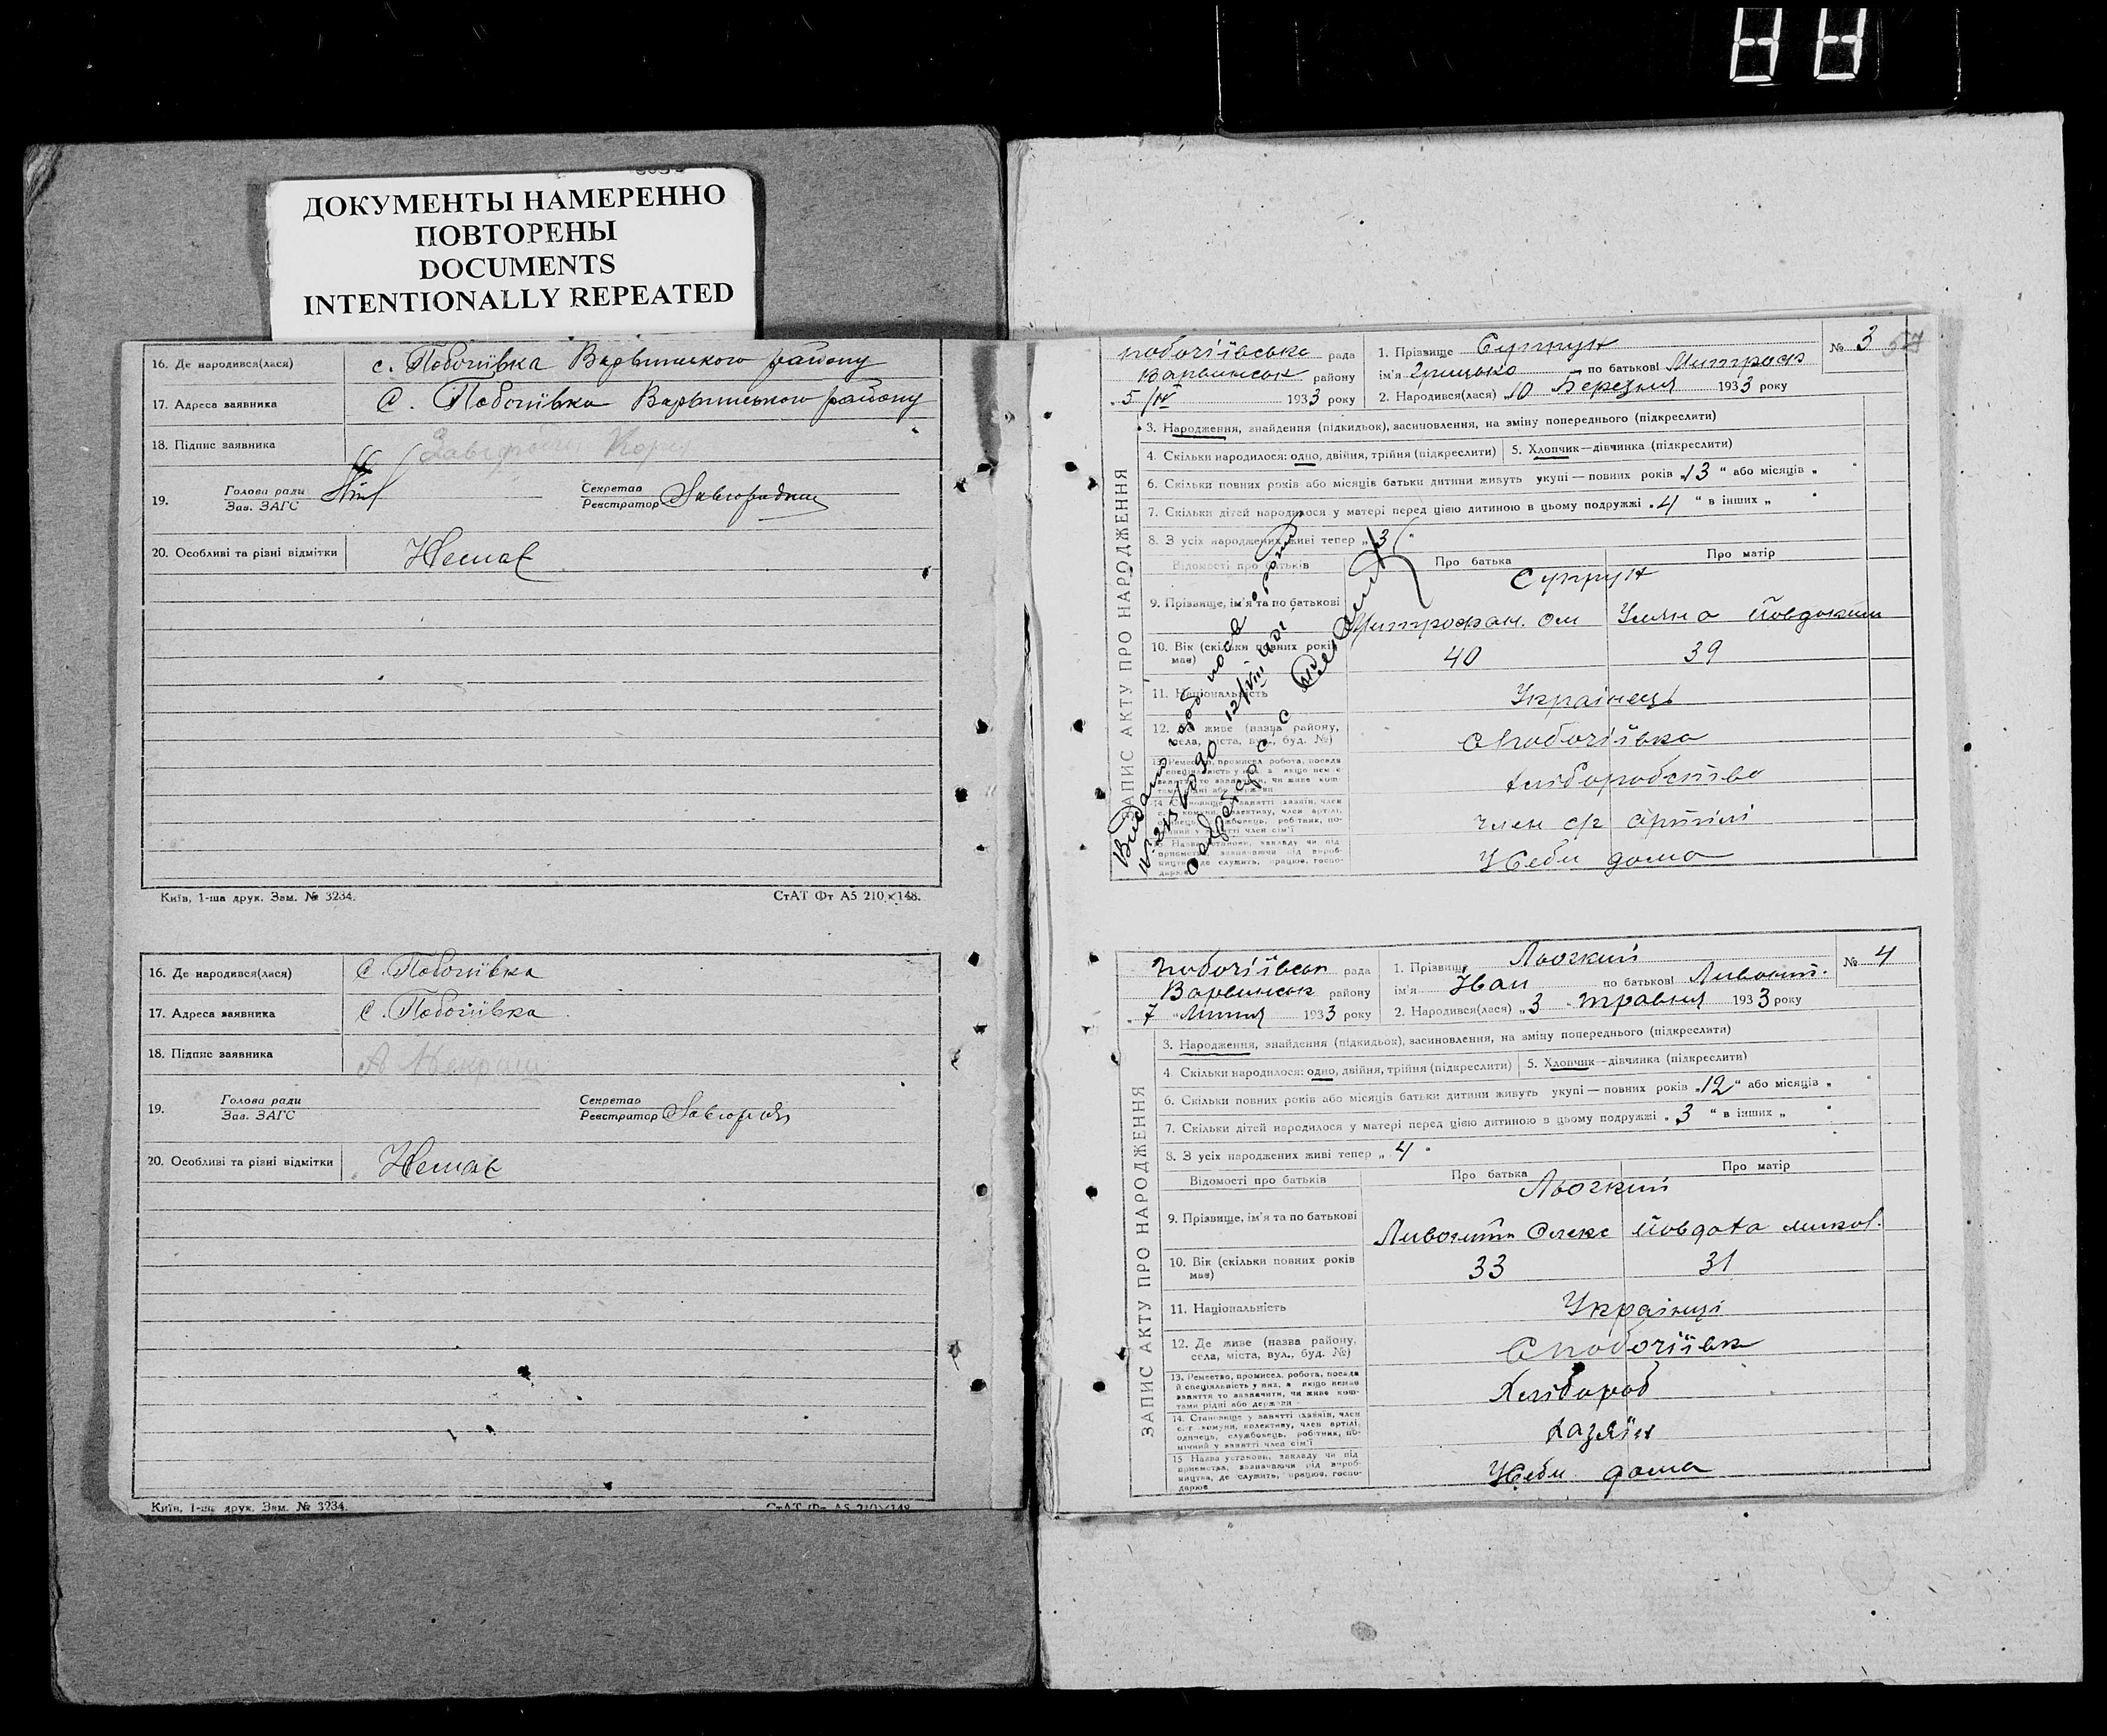 ДОКУМЕНТЫ НАМЕРЕННО
ПОВТОРЕНЫ
DOCUMENTS
INTENTIONALLY REPEATED
16. Де народився(лася) с. Побочіївка Варвинського району
17. Адреса заявника С. Побочіївка Варвинського району
18. Підпис заявника
19. Голова ради
Зав. ЗАГС
Секретар
Реєстратор
20. Особливі та різні відмітки Немає
Київ, 1-ша друк. Зам. № 3234. СтАТ Фт А5 210×148.
16. Де народився(лася) С. Побочіївка
17. Адреса заявника С. Побочіївка
18. Підпис заявника
19. Голова ради
Зав. ЗАГС
Секретар
Реєстратор
20. Особливі та різні відмітки Немає
Київ, 1-ша друк. Зам. № 3234. СтАТ Фт А5 210×148
ЗАПИС АКТУ ПРО НАРОДЖЕННЯ
побочіївська рада
Варвинськ району
5/IV 1933 року
1. Прізвище Супрун
ім'я Грицько по батькові Митроф
2. Народився(лася) „10 Березня 1933 року
№ 3
3. Народження, знайдення (підкидьок), засиновлення, на зміну попереднього (підкреслити)
4. Скільки народилося: одно, двійня, трійня (підкреслити) 5. Хлопчик—дівчинка (підкреслити)
6. Скільки повних років або місяців батьки дитини живуть укупі — повних років „13 “ або місяців „ “
7. Скільки дітей народилося у матері перед цією дитиною в цьому подружжі „4 “ в інших „ “
8. З усіх народжених живі тепер „ 3 “
Відомості про батьків Про батька Про матір
Супрун
9. Прізвище, ім'я та по батькові Митрофан. Ом Уляна Йовдоким
10. Вік (скільки повних років має) 40 39
11. Національність Українець
12. Де живе (назва району, села, міста, вул., буд. №) С Побочіївка
13. Ремество, промисел, робота, посада Хліборобство
14. Становище у занятті член с/г артілі
15. Назва установи, закладу чи підприємства У себи дома
ЗАПИС АКТУ ПРО НАРОДЖЕННЯ
Побочіївськ рада
Варвинськ району
„7 “ Липня 1933 року
1. Прізвище Льогкий
ім'я Іван по батькові
2. Народився(лася) „3 “ травня 1933 року
№ 4
3. Народження, знайдення (підкидьок), засиновлення, на зміну попереднього (підкреслити)
4. Скільки народилося: одно, двійня, трійня (підкреслити) 5. Хлопчик—дівчинка (підкреслити)
6. Скільки повних років або місяців батьки дитини живуть укупі — повних років „12“ або місяців „ “
7. Скільки дітей народилося у матері перед цією дитиною в цьому подружжі „ 3 “ в інших „ “
8. З усіх народжених живі тепер „ 4 “
Відомості про батьків Про батька Про матір
Льогкий
9. Прізвище, ім'я та по батькові Олекс Йовдоха микол.
10. Вік (скільки повних років має) 33 31
11. Національність Українці
12. Де живе (назва району, села, міста, вул., буд. №) С Побочіївк
13. Ремество, промисел, робота, посада й спеціяльність у них, а якщо немає заняття то зазначити, чи живе коштами рідні або держави Хлібороб
14. Становище у занятті (хазяїн, член с. г. комуни, колективу, член артілі, одинець, службовець, робітник, помічний у занятті член сім'ї Хазяїн
15 Назва установи, закладу чи підприємства, зазначаючи рід виробництва, де служить, працює, господарює У себи дома